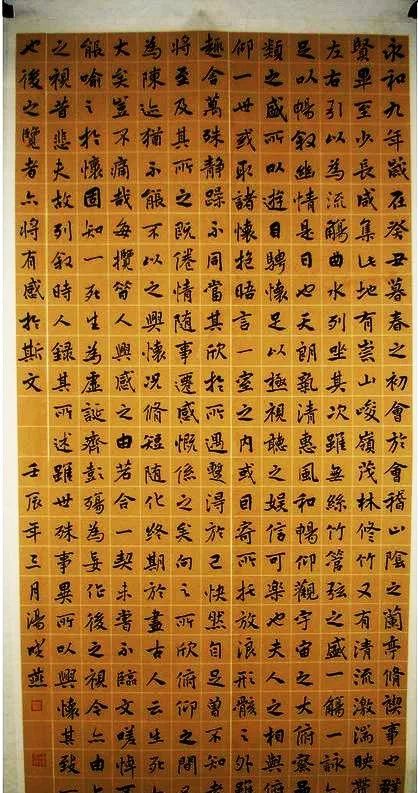 永和九年歲在癸丑暮春之初會於會稽山陰之蘭亭脩禊事也群
賢畢至少長咸集此地有崇山峻嶺茂林修竹又有清流激湍映帶
左右引以為流觴曲水列坐其次雖無絲竹管弦之盛一觴一詠
足以暢敘幽情是日也天朗氣清惠風和暢仰觀宇宙之大俯察品
類之盛所以遊目騁懷足以極視聽之娛信可樂也夫人之相與俯
仰一世或取諸懷抱晤言一室之內或因寄所托放浪形骸之外雖
趣舍萬殊靜躁不同當其欣於所遇暫得於己快然自足曾不知老
將至及其所之既倦情隨事遷感慨係之矣向之所欣俯仰之間
為陳迹猶不能不以之興懷況脩短隨化終期於盡古人云生死
大矣豈不痛哉每攬昔人興感之由若合一契未嘗不臨文嗟悼
能喻之於懷固知一死生為虛誕齊彭殤為妄作後之視今亦由
之視昔悲夫故列敘時人錄其所述雖世殊事異所以興懷其致
也後之覽者亦將有感於斯文 壬辰年三月湯成燕